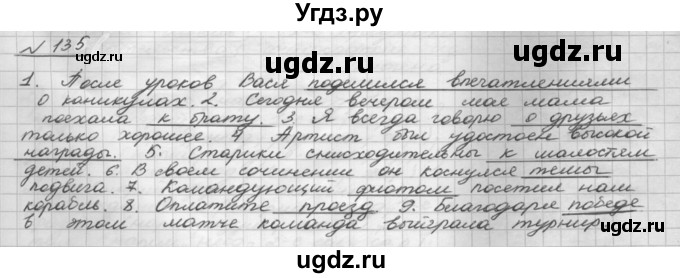 Угдз.ру
№ 135
1. После уроков Вася поделился впечатлениями
о каникулах. 2. Сегодня вечером моя мама
поехала к брату. 3. Я всегда говорю о друзьях
только хорошее. 4. Артист был удостоен высокой
награды. 5. Старики снисходительны к шалостям
детей. 6. В своем сочинении он коснулся темы
подвига. 7. Командующий флотом посетил нам
корабль. 8. Оплатите проезд 9. Благодаря победе
в этом матче команда выиграла турнир
ugdz.ru ugdz.ru ugdz.ru
ugdz.ru ugdz.ru ugdz.ru
ugdz.ru ugdz.ru